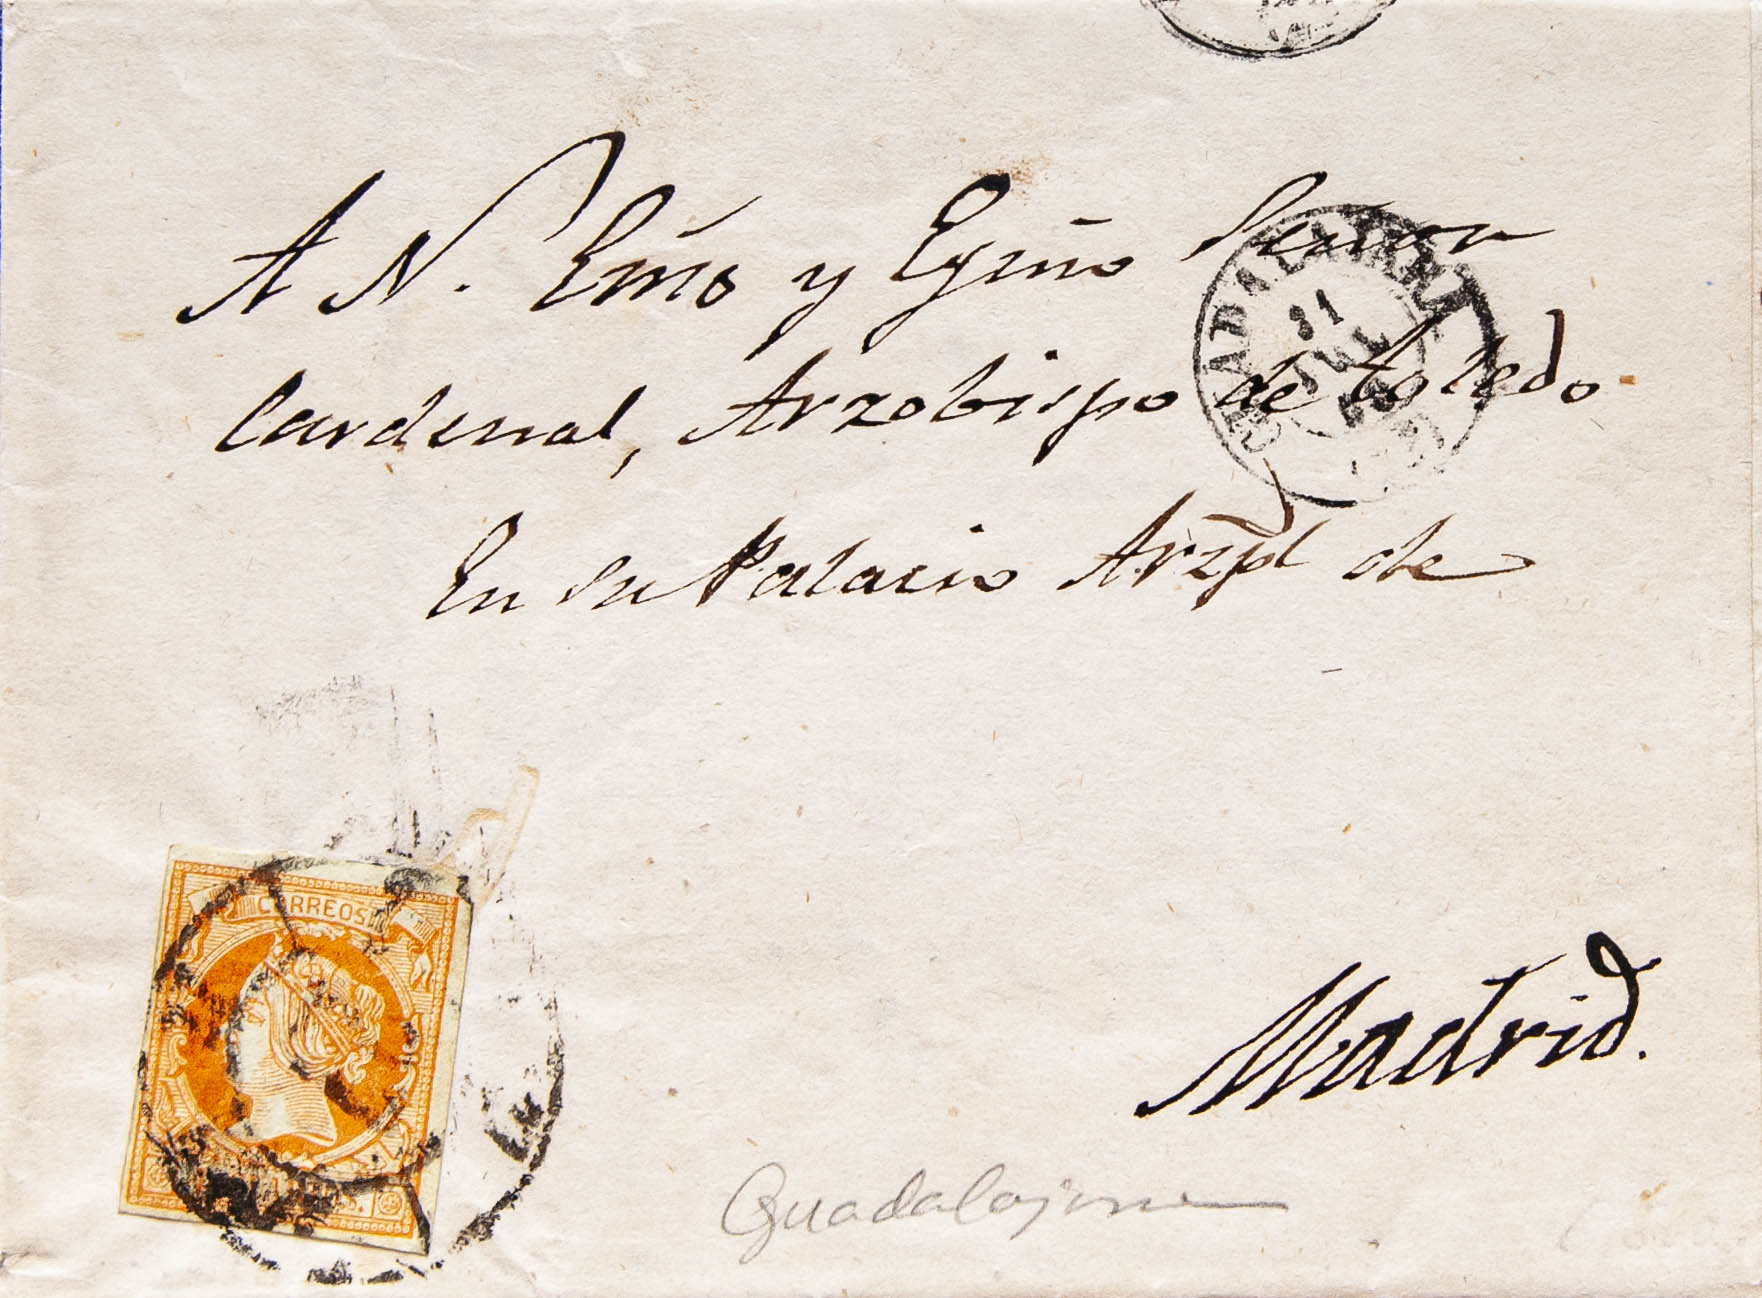 A N. Emo y Exmo Señor
GUADALAJARA
31
JUL
Cardenal, Arzobispo de Toledo
En su Palacio Arzpl de
CORREOS
Madrid.
Guadalajara